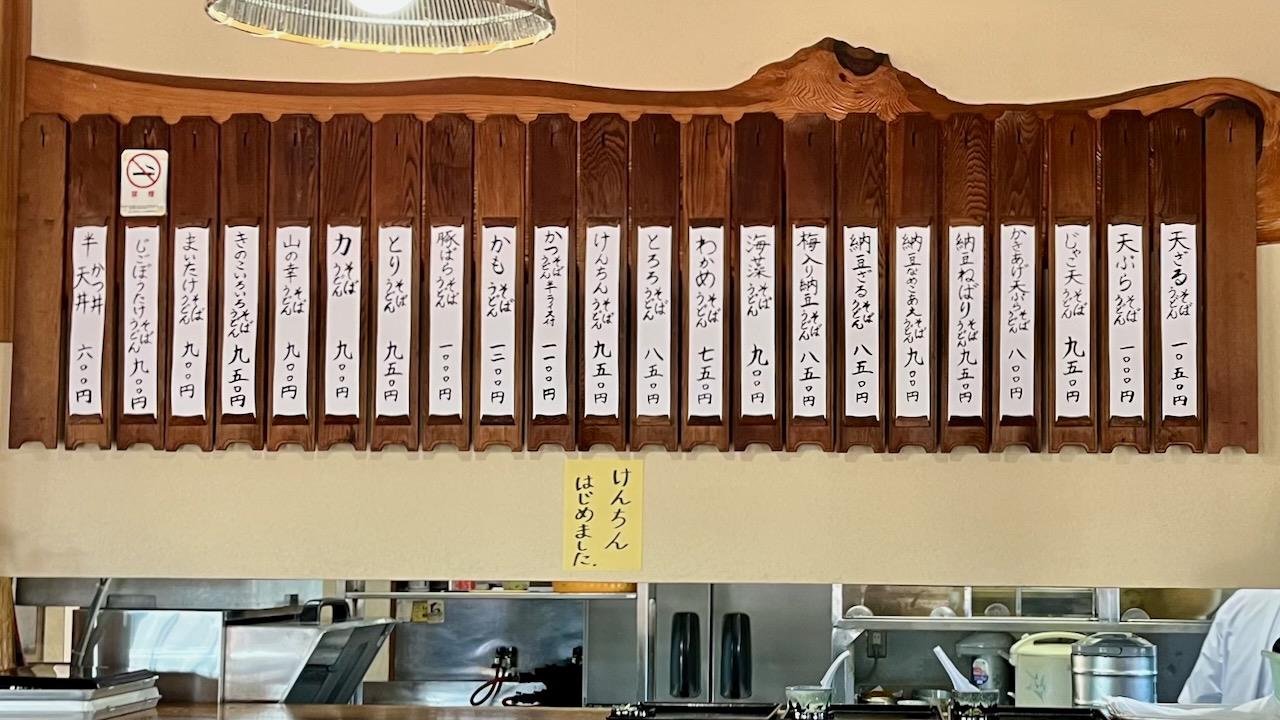 天ざるそばうどん 一〇五〇円
天ぷらそばうどん 一〇〇〇円
じゃこ天そばうどん 九五〇円
かきあげ天ぷらそばうどん 八〇〇円
納豆ねばりそばうどん 九五〇円
納豆なめこあえそばうどん 九〇〇円
納豆ざるそばうどん 八五〇円
梅入り納豆そばうどん 八五〇円
海藻そばうどん 九〇〇円
わかめそばうどん 七五〇円
とろろそばうどん 八五〇円
けんちんそばうどん 九五〇円
かつそばうどん半ライス付 一一〇〇円
かもそばうどん 一二〇〇円
豚ばらそばうどん 一〇〇〇円
とりそばうどん 九五〇円
力そばうどん 九〇〇円
山の幸そばうどん 九〇〇円
きのこいろいろそばうどん 九五〇円
まいたけそばうどん 九〇〇円
じごぼうたけそばうどん 九〇〇円
半かつ丼天丼 六〇〇円
禁煙
けんちん
はじめました.